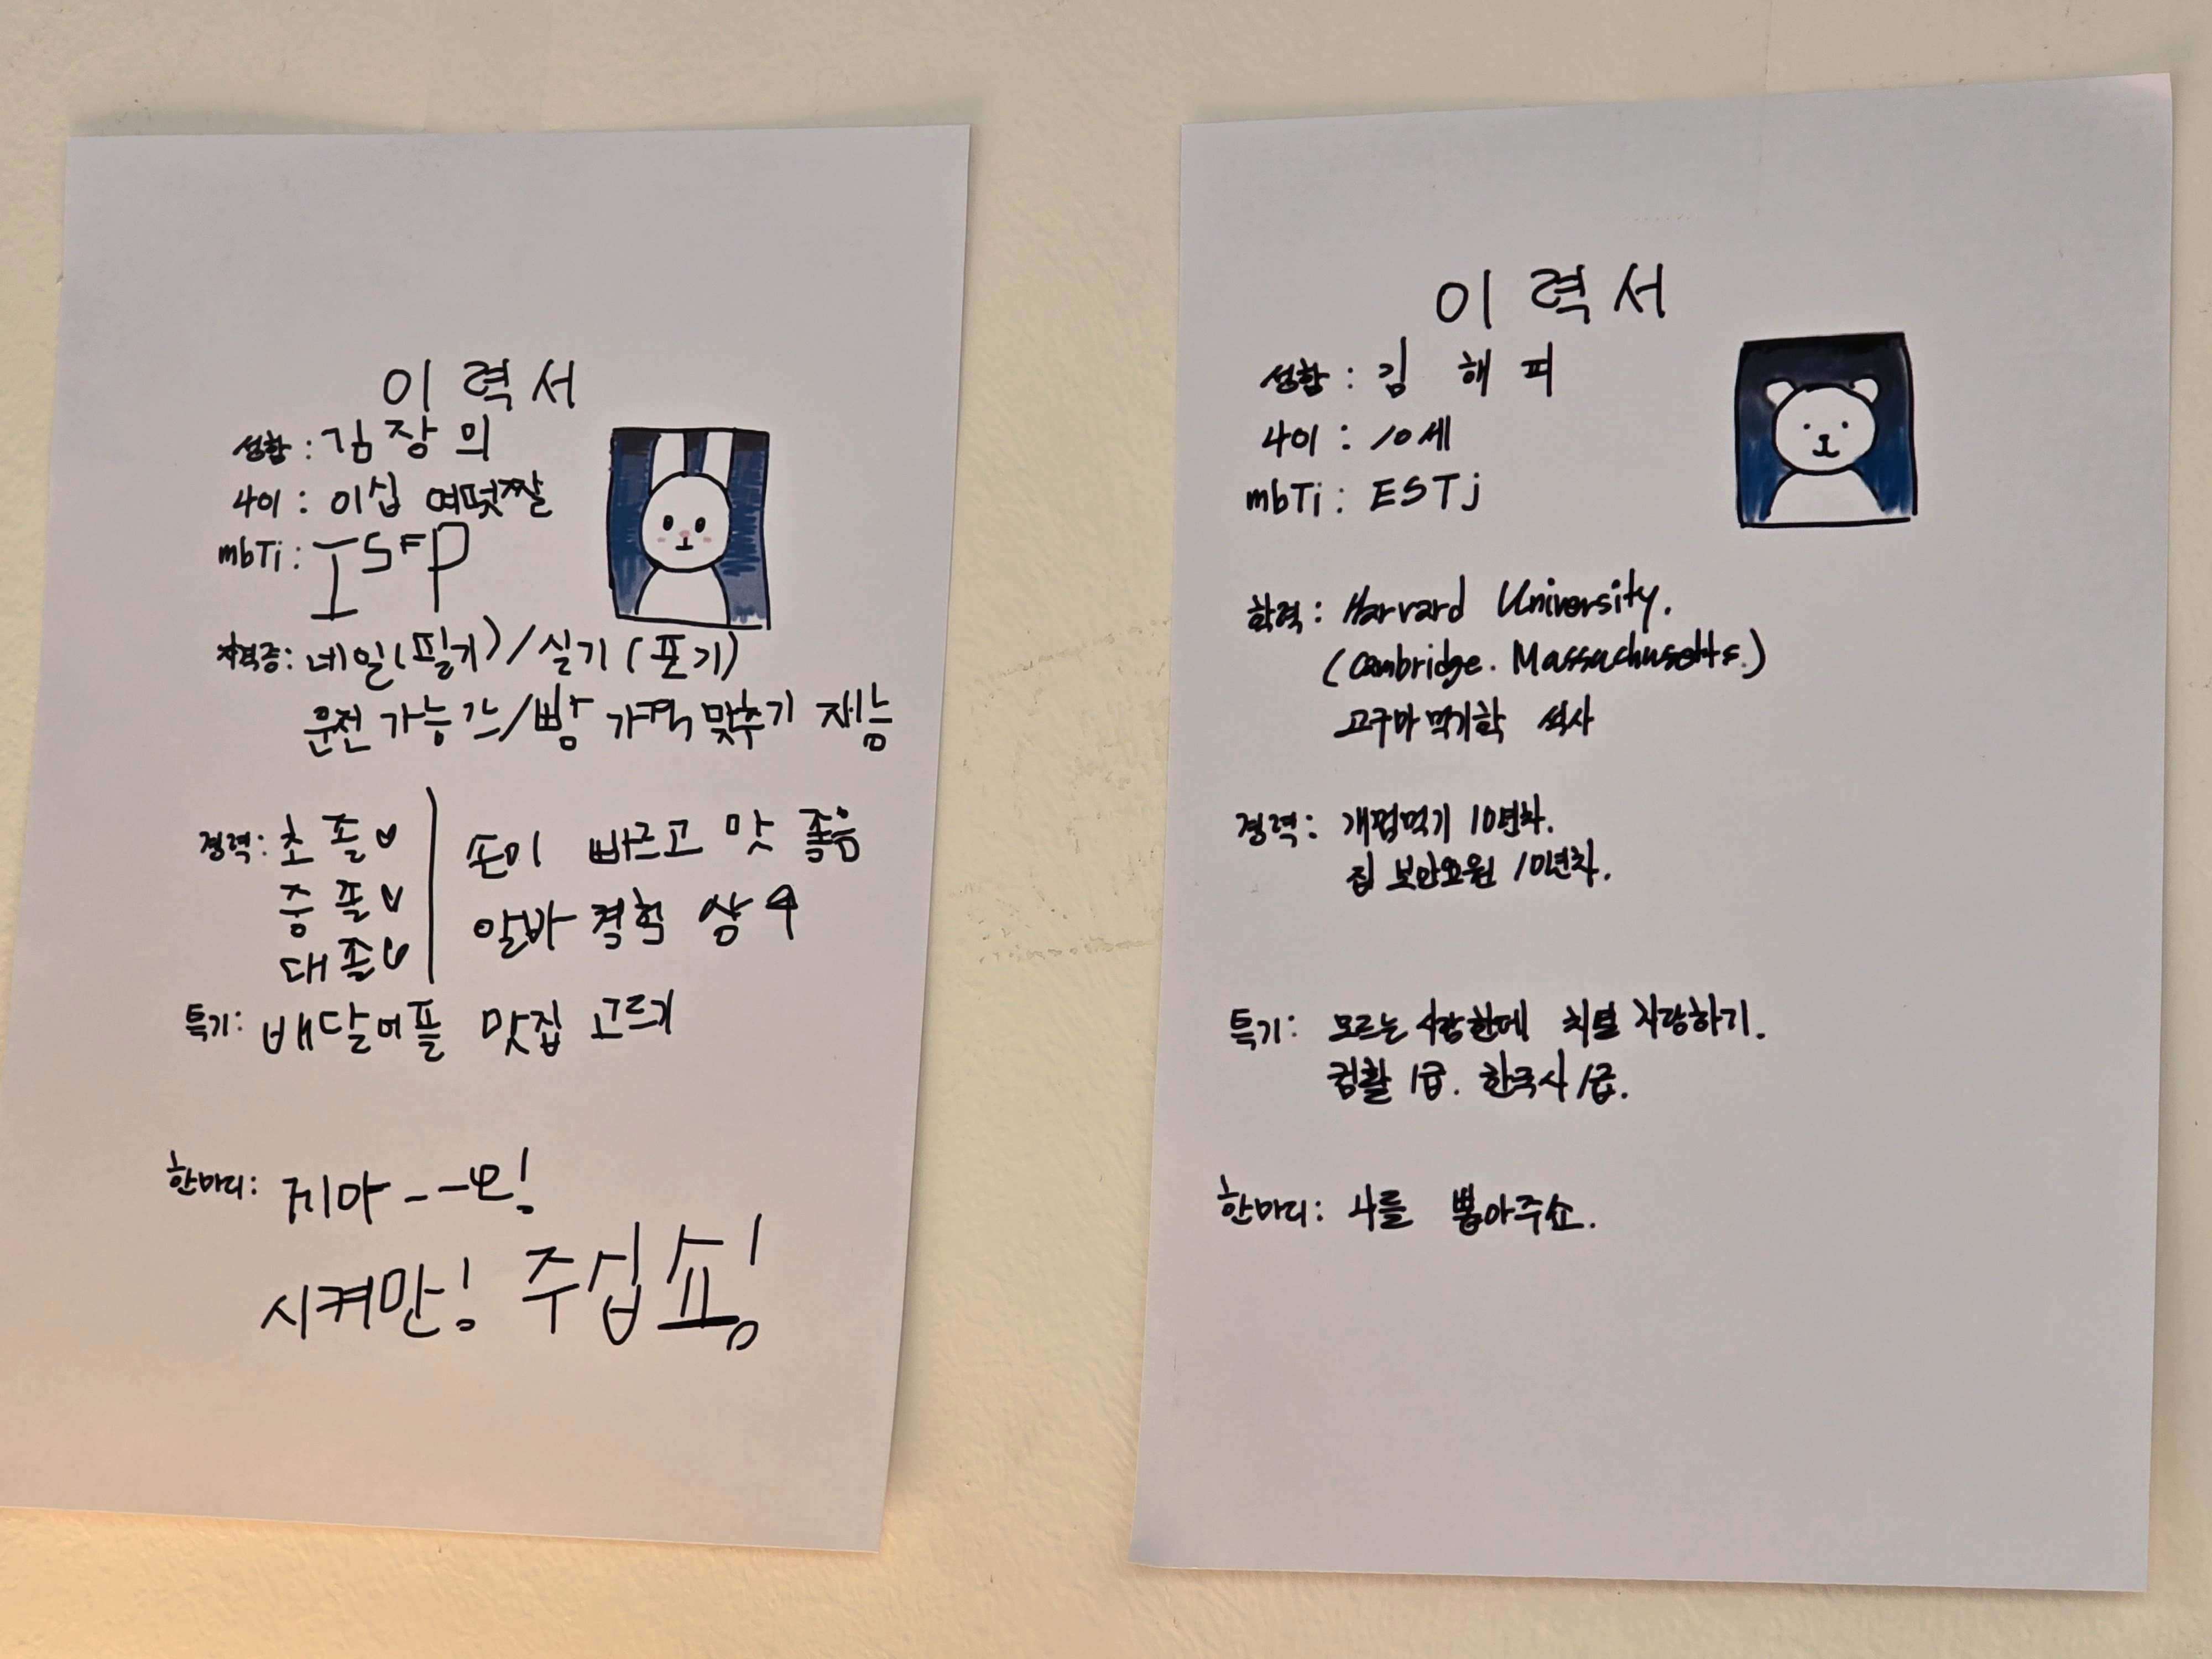 이력서
성함 : 김장의
나이 : 이십 여덟짤
mbTi : ISFP
자격증: 네일(필기)/실기(포기)
운전 가능 긋/빵 가격 맞추기 재능
경력: 초졸♡
중졸♡
대졸♡
손이 빠르고 맛 좋음
알바 경험 상수
특기: 배달어플 맛집 고르기
한마디: 제아--모!
시켜만! 주십쇼!
이력서
성함 : 김 해피
나이 : 10세
mbTi : ESTj
학력: Harvard University.
(Cambridge. Massachusetts.)
고구마먹기학 석사
경력: 개껌먹기 10년차.
집 보안요원 10년차.
특기: 모르는 사람한테 치덜 자랑하기.
컴활 1급. 한국사 1급.
한마디: 나를 뽑아주쇼.